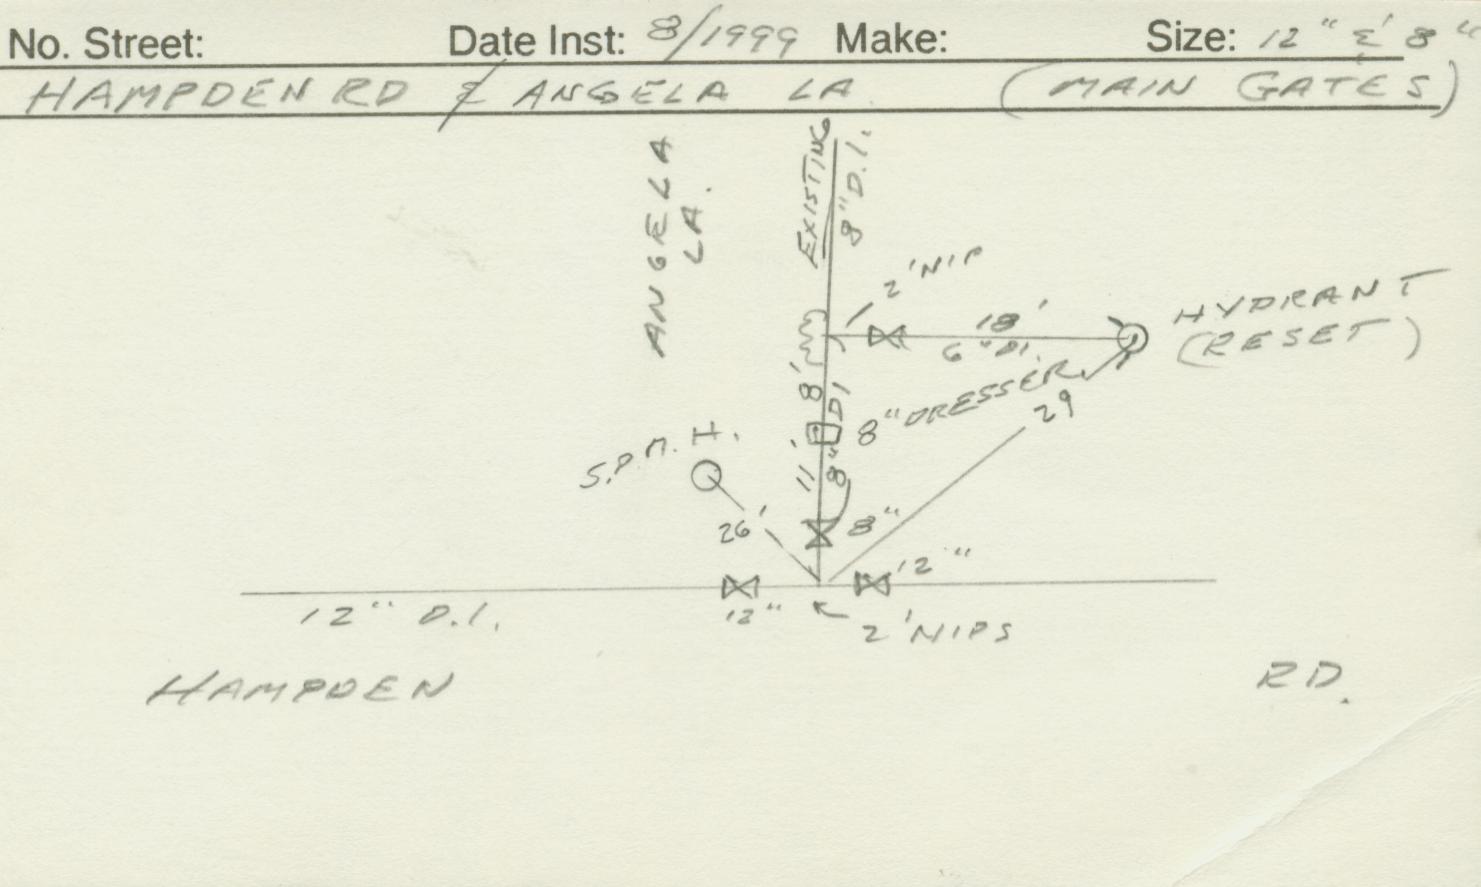 No. Street: Date Inst: 8/1999 Make: Size: 12" & 8"
HAMPDEN RD & ANGELA LA (MAIN GATES)
ANGELA
LA.
EXISTING
8" D.I.
2' NIP
18'
6" DI.
HYDRANT
(RESET)
8'
DI
8" DRESSER
29
S.P.M.H.
11'
8"
26'
8"
12"
12" D.I.
12"
2' NIPS
HAMPDEN RD.